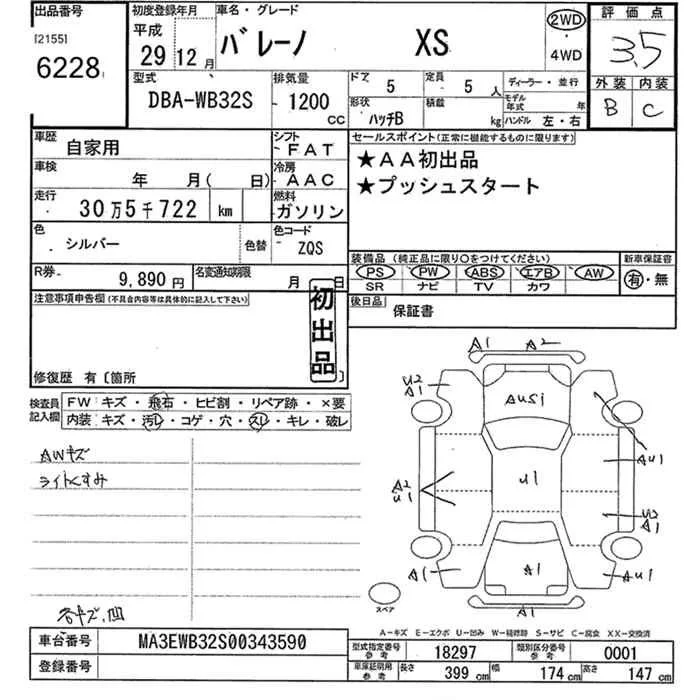 出品番号
[2155]
6228
初度登録年月
平成 29 12 月
車名・グレード
バレーノ XS
2WD
・
4WD
評価点
3.5
外装 内装
B C
型式
DBA-WB32S
排気量
1200 CC
ドア 5
定員 5 人
ディーラー・並行
形状 ハッチB
積載 kg
モデル年式 年
ハンドル 左・右
車歴 自家用
シフト FAT
車検 年 月( 日)
冷房 AAC
走行 30万5千722 km
燃料 ガソリン
色 シルバー 色替
色コード ZQS
R券 9,890円
名変通知期限 月 日
セールスポイント(正常に機能するものに限ります)
★AA初出品
★プッシュスタート
装備品 (純正品に限り〇をつけてください)
PS PW ABS エアB AW
SR ナビ TV カワ
新車保証書
有・無
後日品 保証書
注意事項申告欄(不具合内容等は具体的に記入して下さい)
初出品
修復歴 有〔箇所 〕
検査員記入欄
FW:キズ・飛石・ヒビ割・リペア跡・×要
内装:キズ・汚レ・コゲ・穴・スレ・キレ・破レ
AWキズ
ライトくすみ
各キズ、凹
A1 A2
U2
A1
AUS1
A2
U1
U1
AU1
U2
A1
A1
A1
AU1
A1
スペア
A－キズ E－エクボ U－凹み W－補修跡 S－サビ C－腐食 XX－交換済
車台番号 MA3EWB32S00343590
登録番号
型式指定番号 参考 18297
類別区分番号 参考 0001
車庫証明用 参考 長さ 399 cm 幅 174 cm 高さ 147 cm